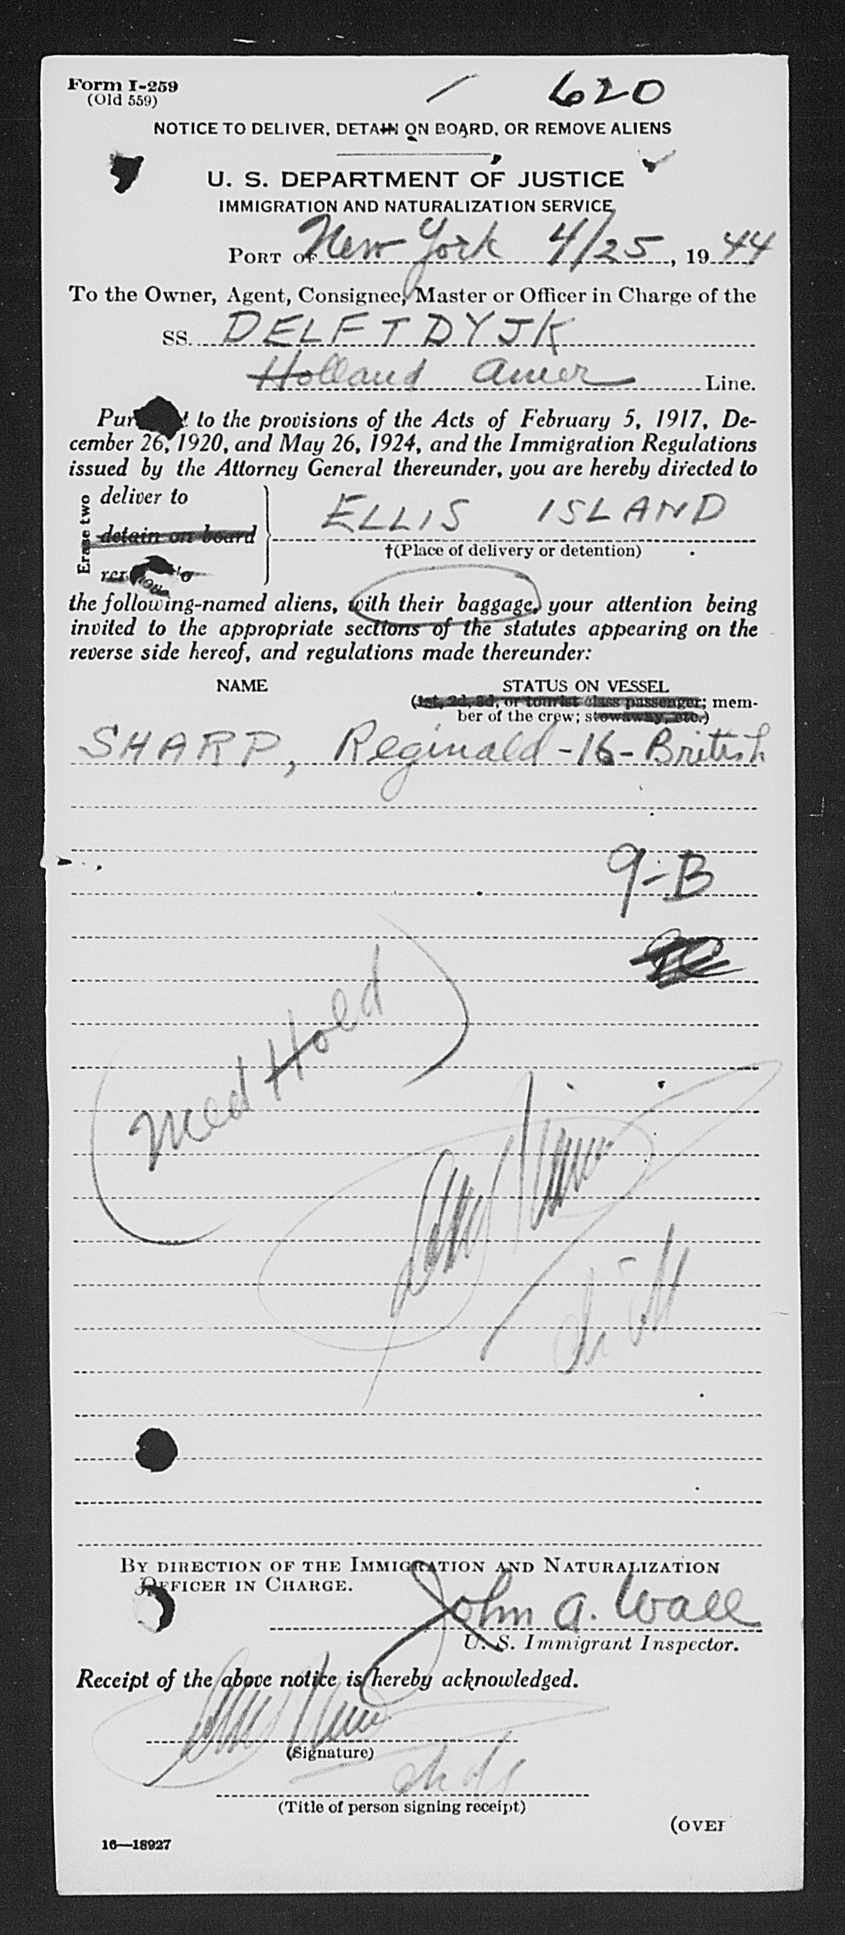 Form I-259
(Old 559)
620
NOTICE TO DELIVER, DETAIN ON BOARD, OR REMOVE ALIENS
U. S. DEPARTMENT OF JUSTICE
IMMIGRATION AND NATURALIZATION SERVICE
PORT OF New York 4/25, 1944
To the Owner, Agent, Consignee, Master or Officer in Charge of the
SS. DELFTDYJK
Holland Amer Line.
to the provisions of the Acts of February 5, 1917, De-
cember 26, 1920, and May 26, 1924, and the Immigration Regulations
issued by the Attorney General thereunder, you are hereby directed to
Erase two
deliver to
detain on board
ELLIS ISLAND
†(Place of delivery or detention)
the following-named aliens, with their baggage, your attention being
invited to the appropriate sections of the statutes appearing on the
reverse side hereof, and regulations made thereunder:
NAME
STATUS ON VESSEL
(1st, 2d, 3d, or tourist class passenger; mem-
ber of the crew; stowaway, etc.)
SHARP, Reginald - 16 - British
9-B
(Med Hold)
BY DIRECTION OF THE IMMIGRATION AND NATURALIZATION
OFFICER IN CHARGE.
John A. Wall
U. S. Immigrant Inspector.
Receipt of the above notice is hereby acknowledged.
(Signature)
(Title of person signing receipt)
(OVER
16—18927